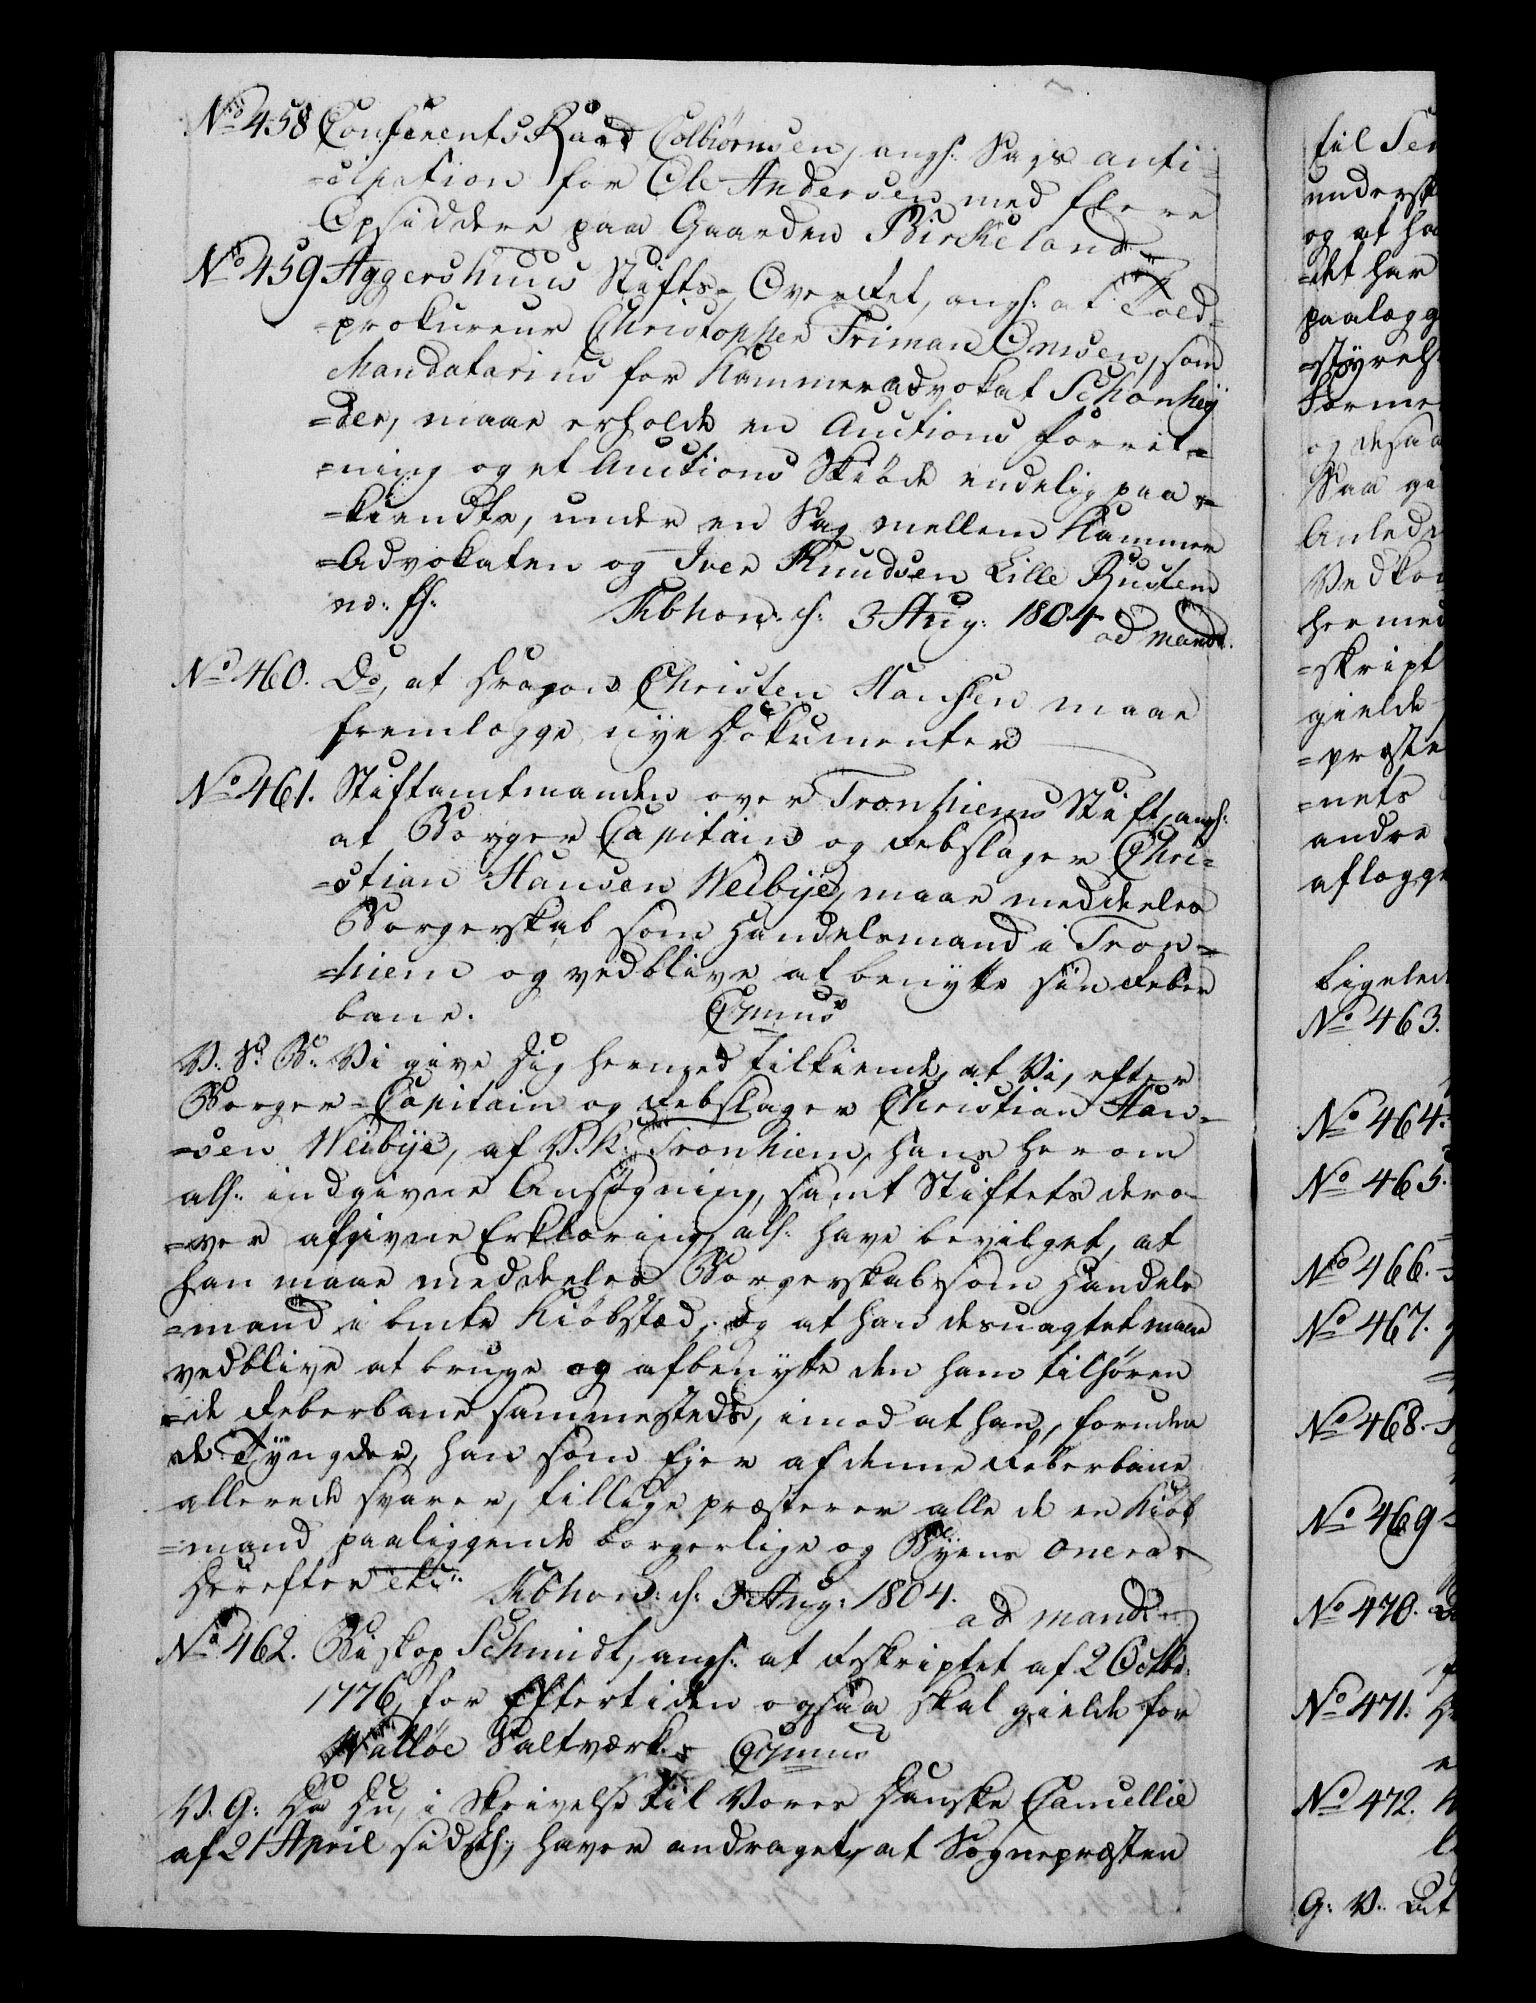 No 458 Conferents Raad Colbiørnsen, angs: Sags anti-
=cipation for Ole Andersen med flere
Opsiddere paa Gaarden Birkeland
No 459 Aggershuus Stifts-Overret, angs: at Told-
=prokureur Christopher Friman Omsen, som
Mandatarius for Kammeradvokat Schønhey
=der, maae erholde en Auctions forret-
=ning og et Auctions Skiøde endelig paa-
=kiendte, under en Sag mellem Kammer
=Advokaten og Iver Knudsen Lille Rustem
Kbhavn: d: 3 Aug: 1804 ad mand:
No 460. Do, at Dragon Christen Hansen maae
fremlægge nye Dokumenter
No 461. Stiftamtmanden over Tronhiems Stift, angs:
at Borger Capitain og Rebslager Chri-
=stian Hansen Weibye, maae meddeeles
Borgerskab som Handelsmand i Tron-
=hiem og vedblive at benytte sin Reber
bane. Cr. mus
V: S: B: Vi give Dig hermed tilkiende, at Vi, efter
Borger-Capitain og Rebslager Christian Han-
=sen Weibye, af V. K: Tronhiem, hans herom
alls: indgivne Ansøgning, samt Stiftets dero-
=ver afgivne Erklæring alls: have bevilget, at
han maae meddeeles Borgerskab som Handels
=mand i bmte Kiøbstæd, og at han desuagtet maae
vedblive at bruge og afbenytte den ham tilhøren
=de Reberbane sammesteds, imod at han, foruden
de Tyngder, han som Ejer af denne Reberbane
allerede svarer, tillige præsterer alle de en Kiøb
=mand paaliggende borgerlige og Byens onera.
Herefter etc: Kbhavn: d: 3 Aug: 1804. ad mand:
No 462. Biskop Schmidt, angs: at Reskriptet af 2 Octbr:
1776, for Eftertiden ogsaa skal gielde for
Walløe Saltværk. Cr. mus
V. G: Da Du, i Skrivelse til Vores Danske Cancellie
af 21 April sidstl:, haver andraget, at Sognepræsten
til Sem
undersk
og at ha
=det har
paalægg
=styrels
Særme
og desaa
Saa gi
Anledn
Vedko
hermed
=skript
gielde
=præste
=nets
andre
aflægge
Ligeled
No 463.
No 464.
No 465.
No 466.
No 467.
No 468.
No 469
No 470.
No 471.
No 472.
G: V: Dit